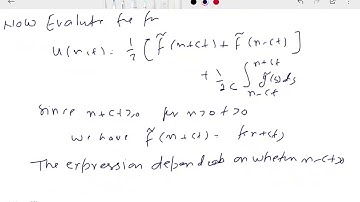 Now Evaluate the fn
u(x,t) = 1/2 [ f̃(x+ct) + f̃(x-ct) ]
+ 1/2c ∫_{x-ct}^{x+ct} g̃(s) ds
Since x+ct>0 for x>0 t>0
we have f̃(x+ct) = f(x+ct)
The expression depends on whether x-ct>0